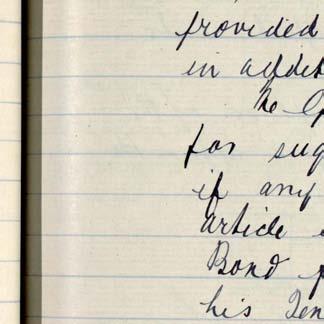 provided
in
The
for sug
if any
article
Bond
his Ten